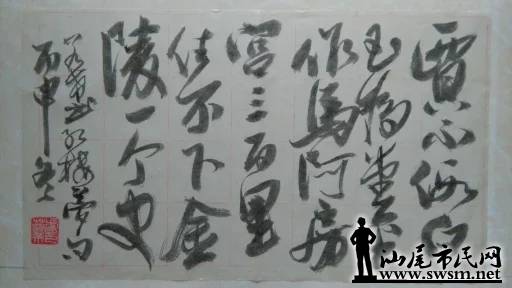 賈不假白
玉為堂金
作馬阿房
宫三百里
住不下金
陵一个史
书红樓夢句
丙申冬
汕尾市民网
www.swsm.net